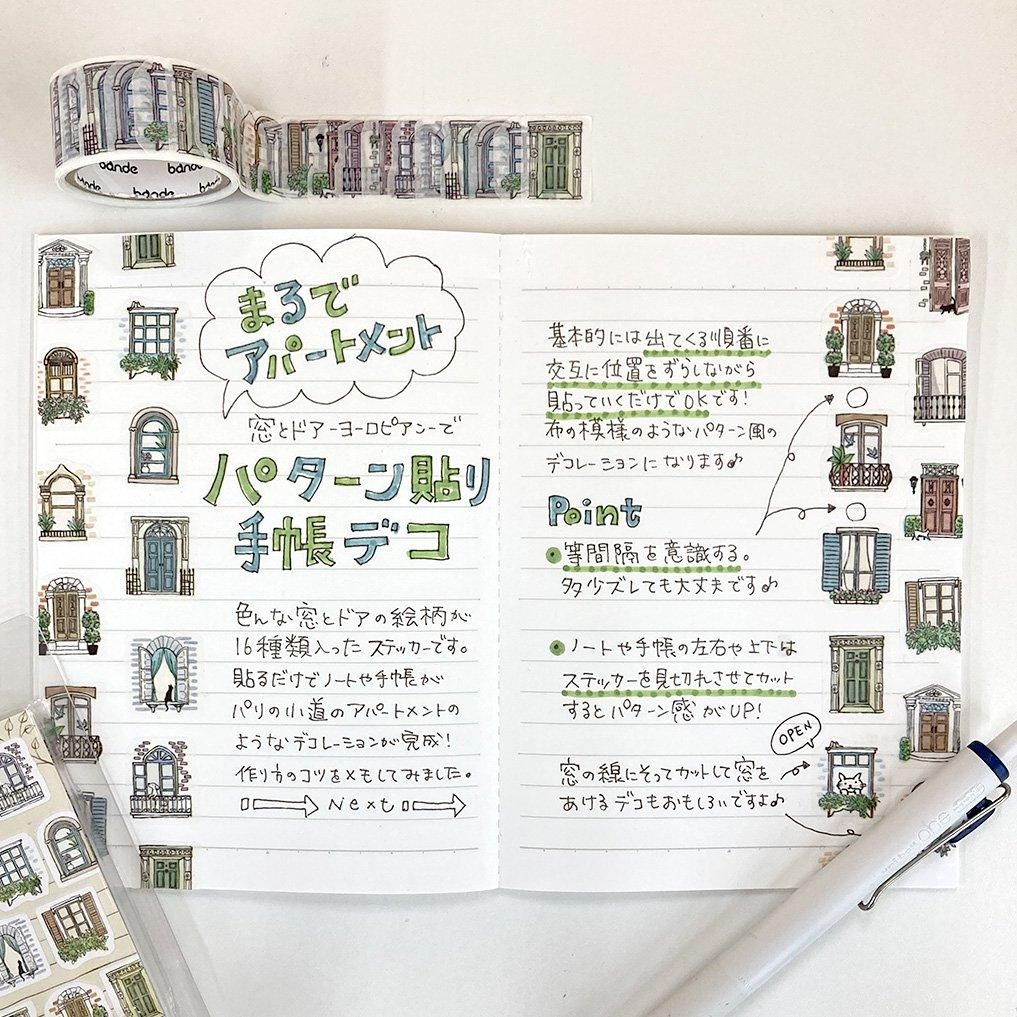 bande bande
bande bande bande
まるで
アパートメント
窓とドアーヨーロピアンーで
パターン貼り
手帳デコ
色んな窓とドアの絵柄が
16種類入ったステッカーです。
貼るだけでノートや手帳が
パリの小道のアパートメントの
ようなデコレーションが完成！
作り方のコツをメモしてみました。
Next
基本的には出てくる順番に
交互に位置をずらしながら
貼っていくだけでOKです！
布の模様のようなパターン風の
デコレーションになります♪
Point
等間隔を意識する。
多少ズレしても大丈夫です♪
ノートや手帳の左右や上下は
ステッカーを見切れさせてカット
するとパターン感がUP！
OPEN
窓の線にそってカットして窓を
あけるデコもおもしろいですよ♪
one